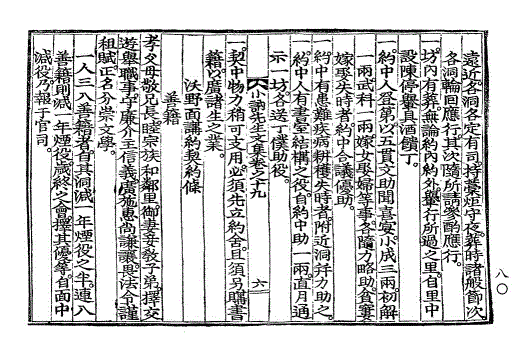 遠近各洞各定有司持藁炬守夜葬時諸般節次
各洞輪回應行其次隨所請參酌應行
一坊內有葬無論約內約外轝行所過之里自里中
設陳停轝具酒饋丁
一約中人登第以五貫文助聞喜宴小成三兩初解
一兩武科一兩嫁女娶婦等事各隨力略助貧寠
嫁娶失時者約中合議優助
一約中有患難疾病耕穫失時者附近洞幷力助之
一約中人有書室結構之役自約中助一兩直月通
示一坊各送丁僕助役
小訥先生文集卷之十九
六
一契中物力稍可支用必須先立約舍且須另購書
籍以廣諸生之業
沃野面講約契約條
善籍
孝父母敬兄長睦宗族和鄰里御妻妾敎子弟擇交
遊擧職事守廉介立信義廣施惠尙謙讓畏法令謹
租賦正名分崇文學
一人三入善籍者自其洞減一年煙役之半連八
善籍則減一年煙役歲終之會擇其優等自面中
減役乃報于官司
八〇